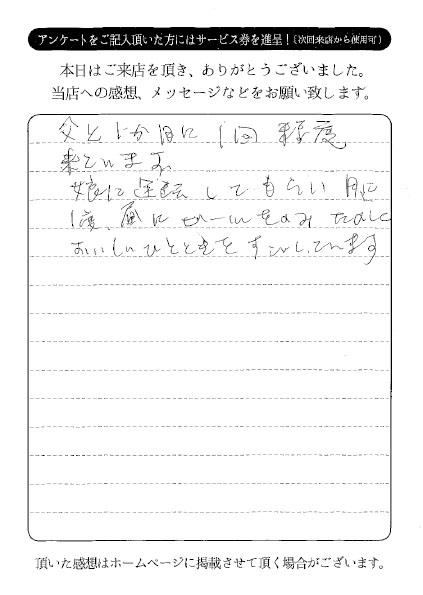 アンケートをご記入頂いた方にはサービス券を進呈！(次回来店から使用可)
本日はご来店を頂き、ありがとうございました。
当店への感想、メッセージなどをお願い致します。
父と1か月に1回程度
来ています。
娘に運転してもらい月に
1度、昼にビールをのみたのしく
おいしいひとときをすごしています
頂いた感想はホームページに掲載させて頂く場合がございます。